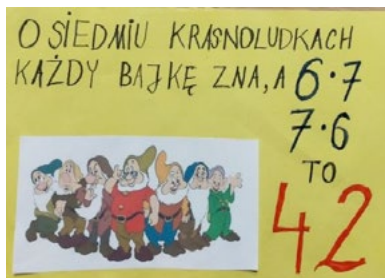 O SIEDMIU KRASNOLUDKACH
KAŻDY BAJKĘ ZNA, A 6·7
7·6
TO
42